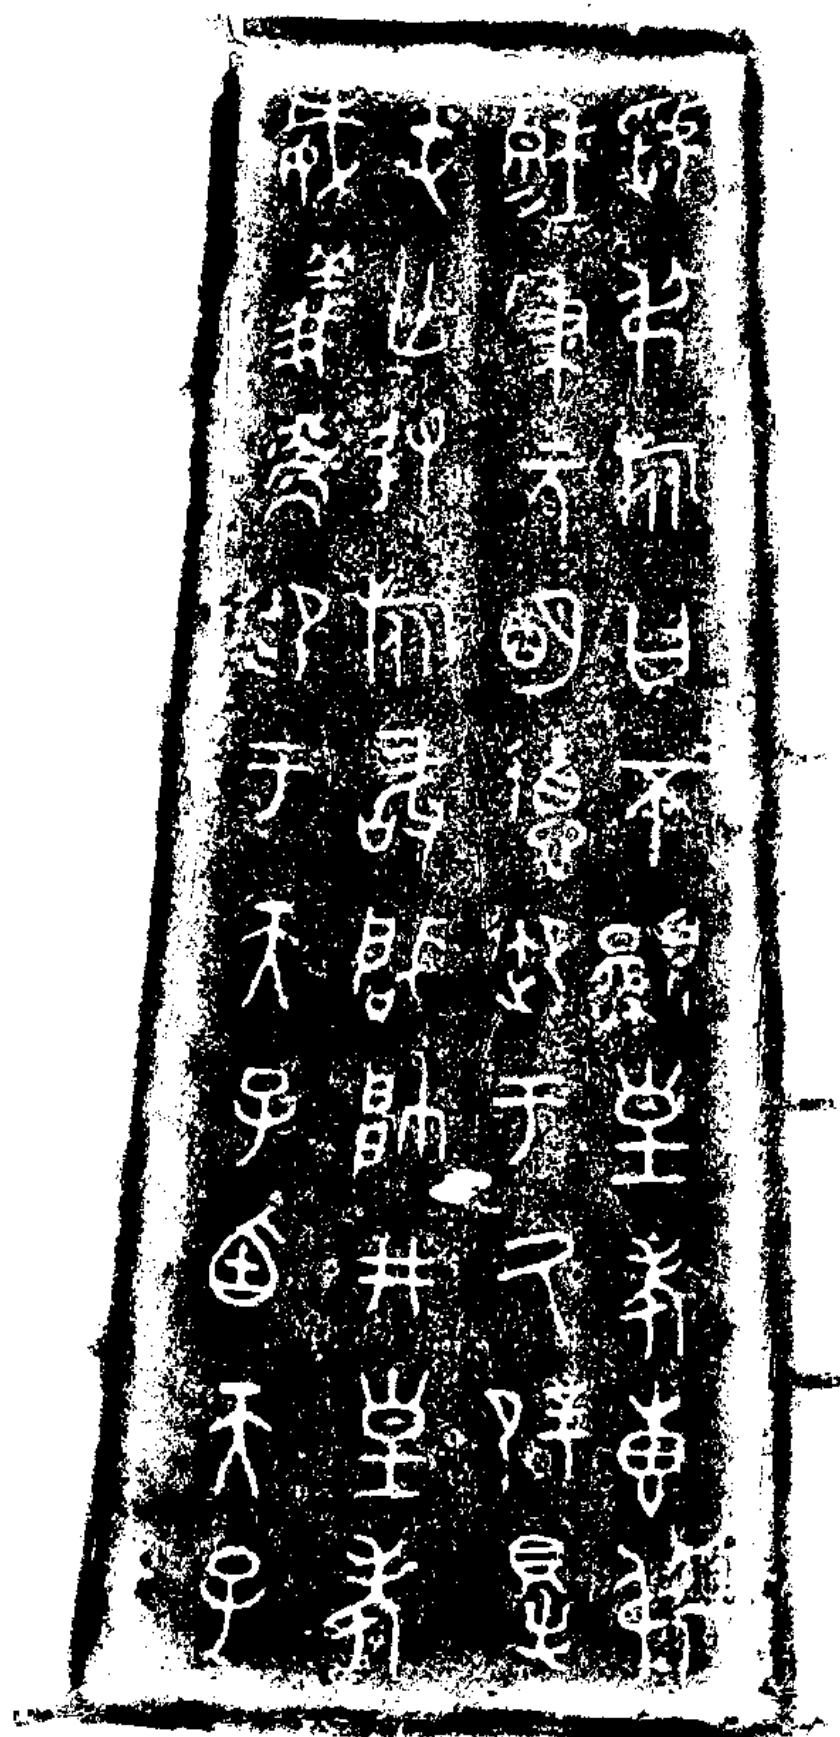 虢叔旅曰不顯皇考叀叔
穆=秉元明德御于氒辟得
屯亡敃旅敢肈帥井皇考
威義御于天子卣天子